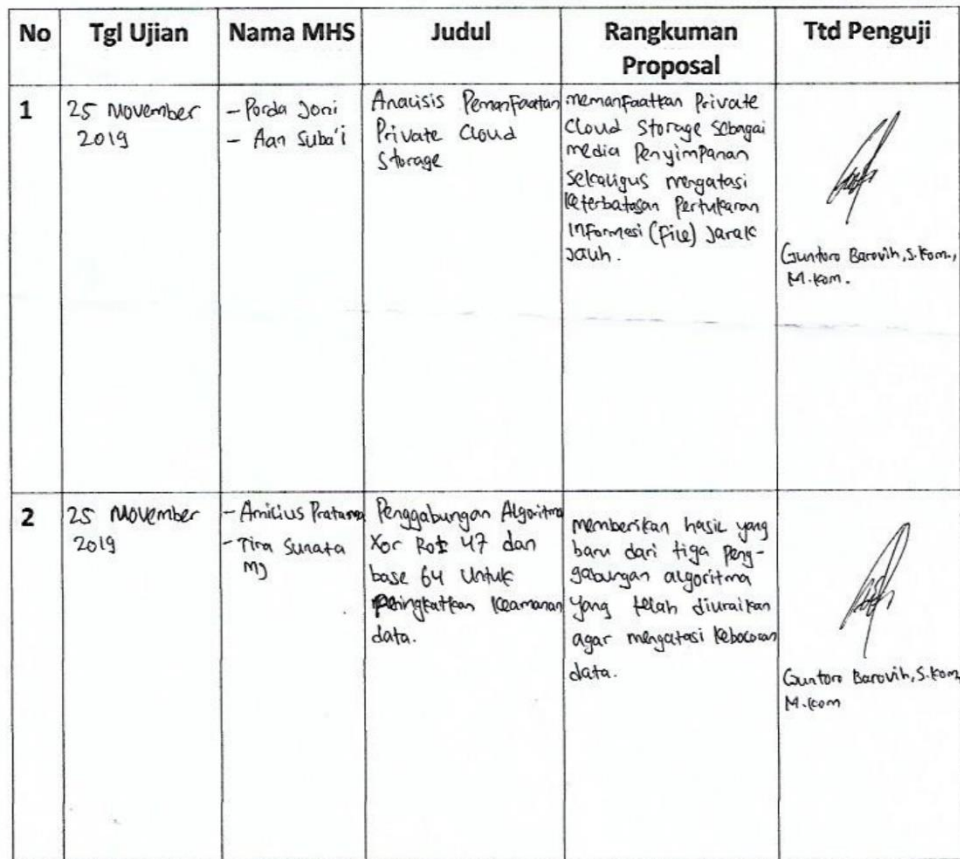 No Tgl Ujian Nama MHS Judul Rangkuman Proposal Ttd Penguji
1
25 November
2019
- Porda Joni
- Aan Suba'i
Analisis Pemanfaatan
Private Cloud
Storage
memanfaatkan Private
Cloud Storage Sebagai
media Penyimpanan
Sekaligus mengatasi
keterbatasan Pertukaran
Informasi (file) Jarak
Jauh.
Guntoro Barovih, S.Kom.,
M.Kom.
2
25 November
2019
- Amilius Pratama
- Tira Sunata
MJ
Penggabungan Algoritma
Xor Rot 47 dan
base 64 Untuk
peningkatkan Keamanan
data.
memberikan hasil yang
baru dari tiga Peng-
gabungan algoritma
yang telah diuraikan
agar mengatasi kebocoran
data.
Guntoro Barovih, S.Kom,
M.Kom